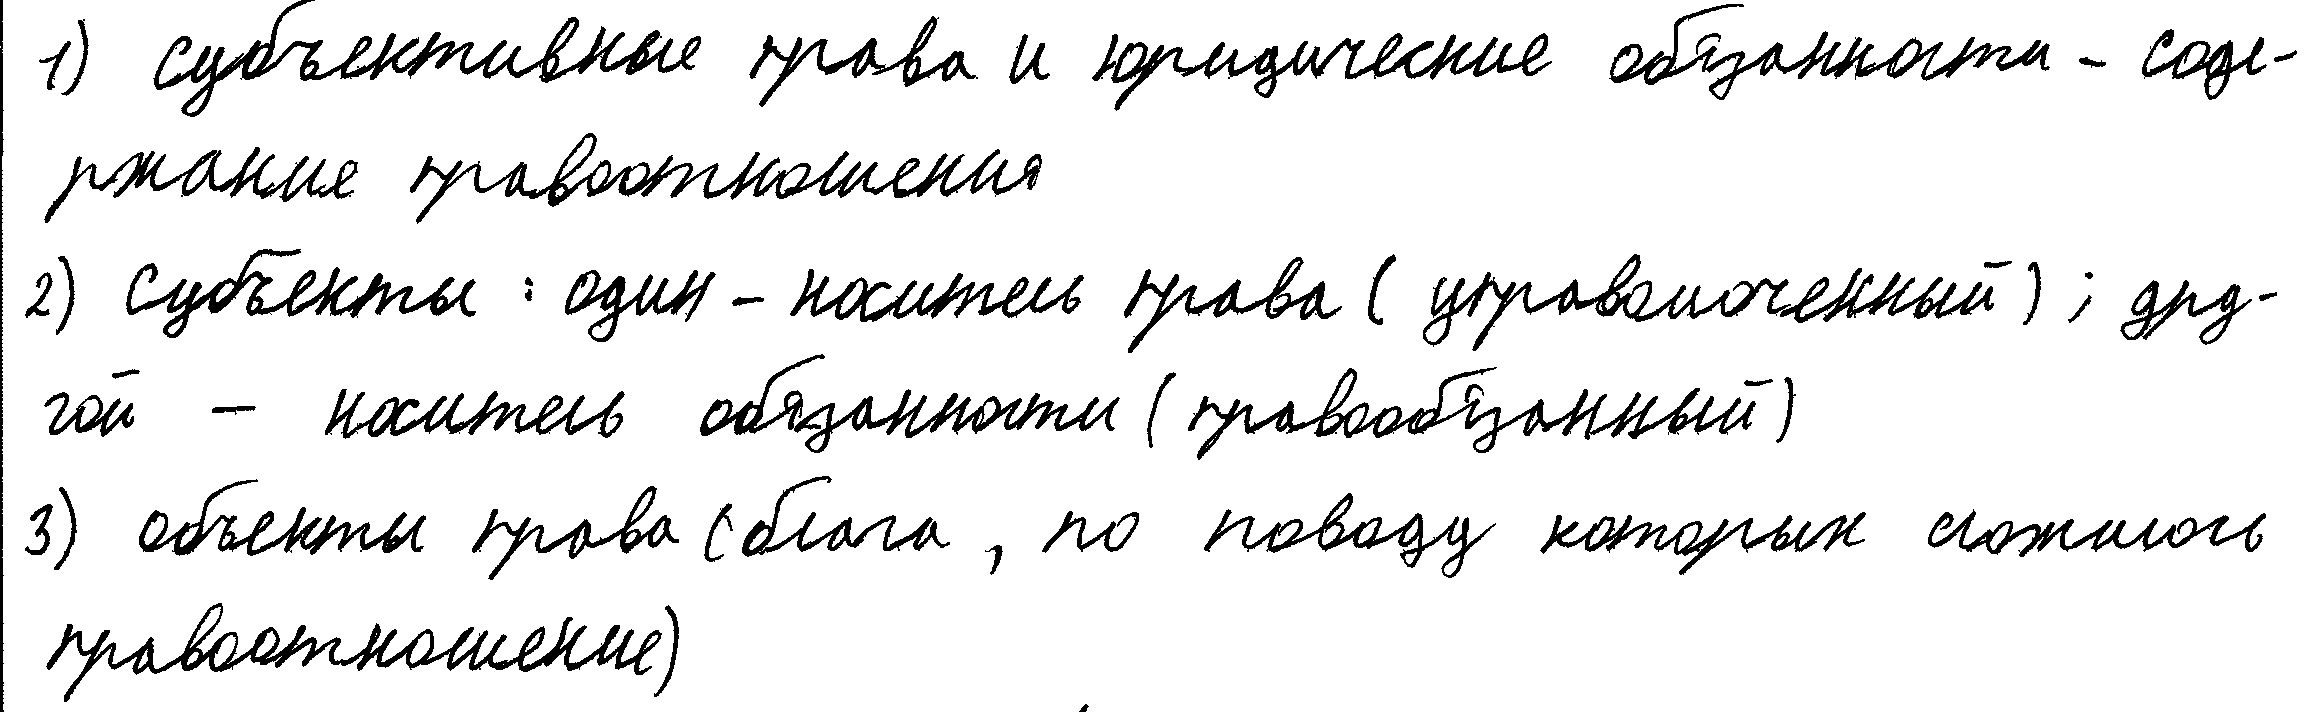 1) субъективные права и юридические обязанности - соде-
ржание правоотношения
2) субъекты : один - носитель права ( управомоченный ) ; дру-
гой - носитель обязанности ( правообязанный )
3) объекты права ( блага , по поводу которых сложилось
правоотношение)